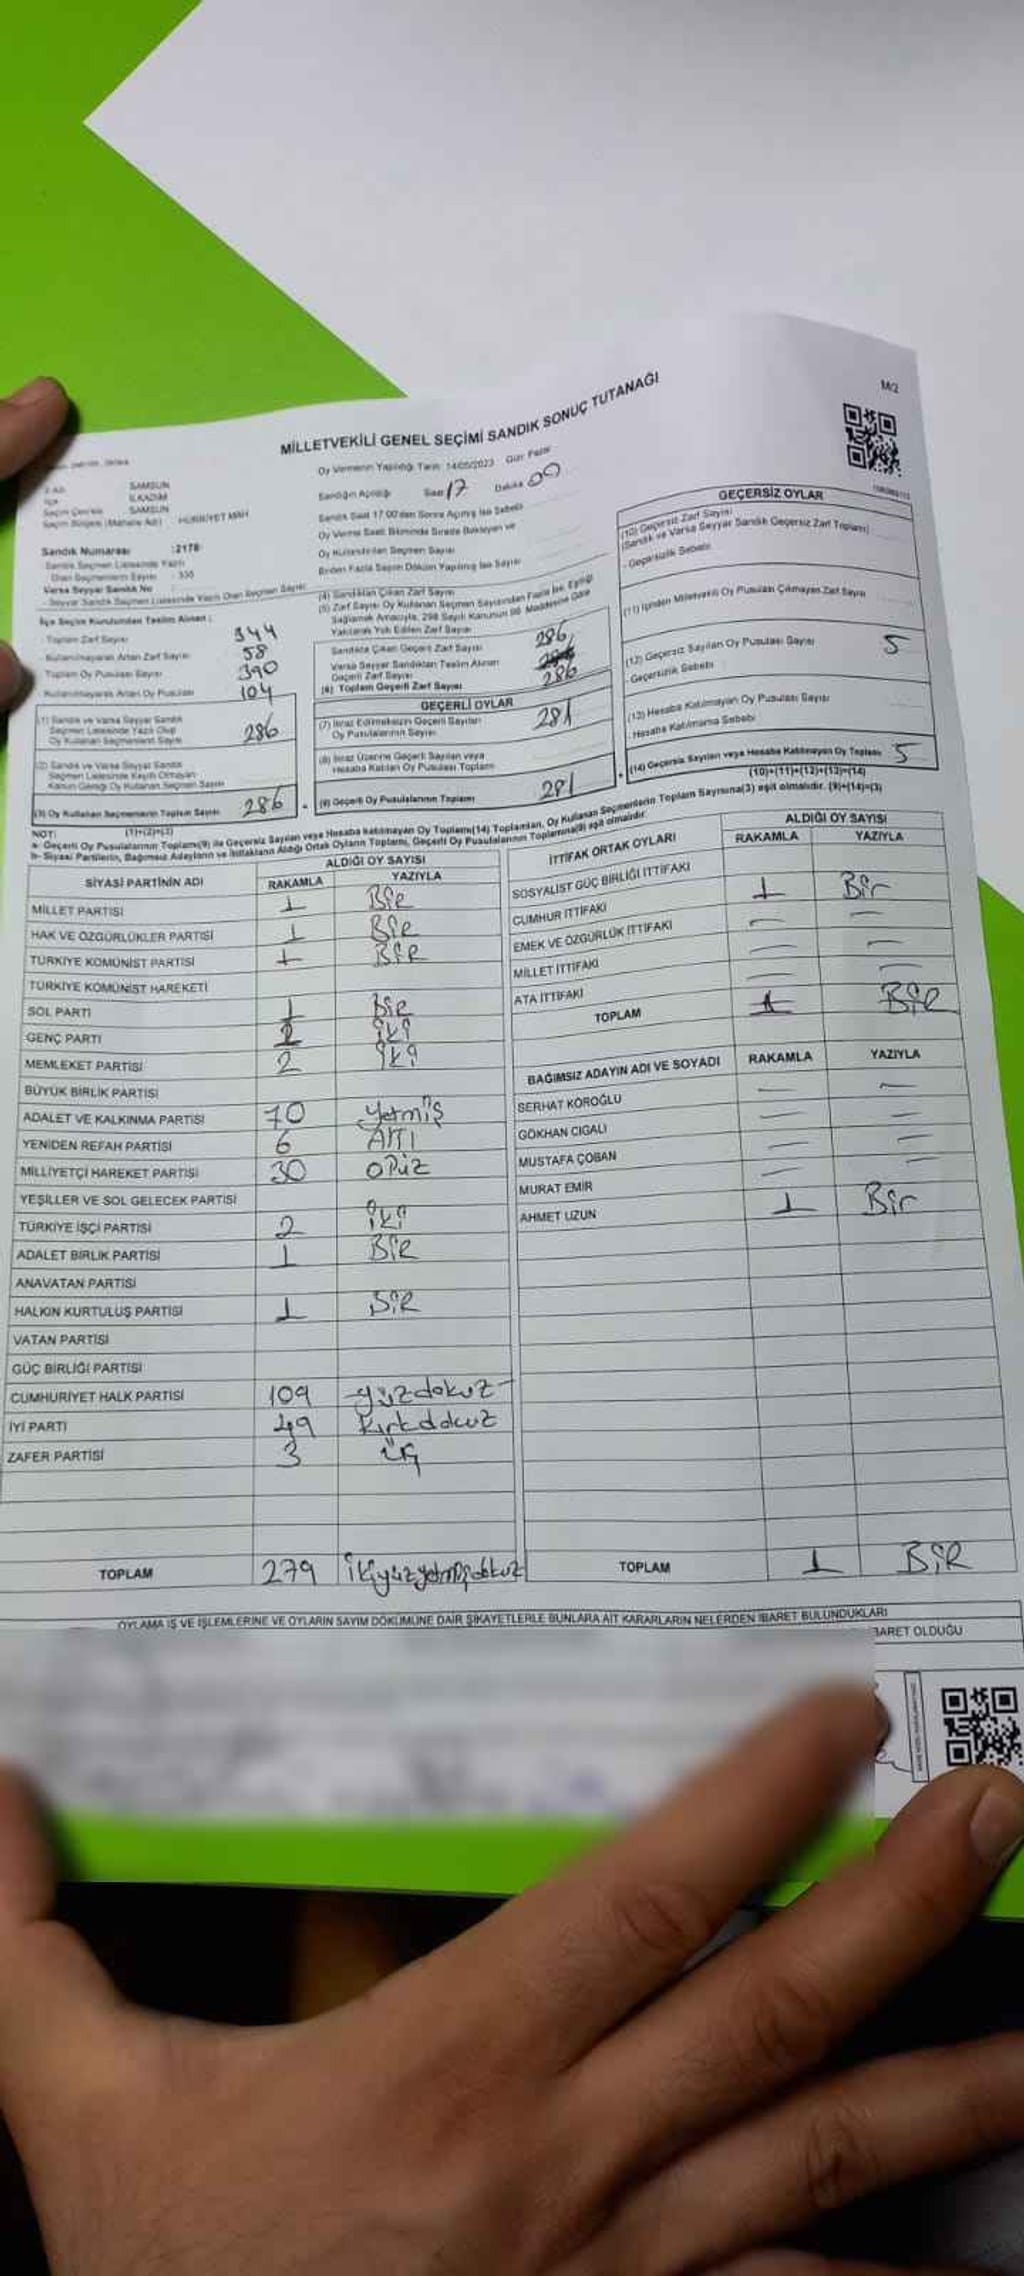 M/2
MİLLETVEKİLİ GENEL SEÇİMİ SANDIK SONUÇ TUTANAĞI
SAMSUN
İLKADIM
Seçim Çevresi SAMSUN
Seçim Bölgesi (Mahalle Adı) HÜRRİYET MAH
Sandık Numarası :2178
Oy Vermenin Yapıldığı Tarih: 14/05/2023 Gün: Pazar
Sandığın Açıldığı Saat 17 Dakika 00
Sandık Saat 17.00'den Sonra Açılmış İse Sebebi
Oy Verme Saati Bitiminde Sırada Bekleyen ve
Oy Kullandırılan Seçmen Sayısı
Birden Fazla Sayım Döküm Yapılmış İse Sayısı
İlçe Seçim Kurulundan Teslim Alınan :
Toplam Zarf Sayısı 344
Kullanılmayarak Artan Zarf Sayısı 58
Toplam Oy Pusulası Sayısı 390
Kullanılmayarak Artan Oy Pusulası 104
(1) Sandık ve Varsa Seyyar Sandık
Seçmen Listesinde Yazılı Olup
Oy Kullanan Seçmenlerin Sayısı 286
(2) Sandık ve Varsa Seyyar Sandık
Seçmen Listesinde Kayıtlı Olmayan
Kanun Gereği Oy Kullanan Seçmen Sayısı
(3) Oy Kullanan Seçmenlerin Toplam Sayısı 286
(1)+(2)=(3)
(4) Sandıktan Çıkan Zarf Sayısı
(5) Zarf Sayısı Oy Kullanan Seçmen Sayısından Fazla İse, Eşitliği
Sağlamak Amacıyla, 298 Sayılı Kanunun 98. Maddesine Göre
Yakılarak Yok Edilen Zarf Sayısı
Sandıkta Çıkan Geçerli Zarf Sayısı 286
Varsa Seyyar Sandıktan Teslim Alınan
Geçerli Zarf Sayısı
(6) Toplam Geçerli Zarf Sayısı 286
GEÇERLİ OYLAR
(7) İtiraz Edilmeksizin Geçerli Sayılan
Oy Pusulalarının Sayısı 281
(8) İtiraz Üzerine Geçerli Sayılan veya
Hesaba Katılan Oy Pusulası Toplamı
(9) Geçerli Oy Pusulalarının Toplamı 281
GEÇERSİZ OYLAR
(10) Geçersiz Zarf Sayısı
(Sandık ve Varsa Seyyar Sandık Geçersiz Zarf Toplamı)
Geçersizlik Sebebi
(11) İçinden Milletvekili Oy Pusulası Çıkmayan Zarf Sayısı
(12) Geçersiz Sayılan Oy Pusulası Sayısı 5
Geçersizlik Sebebi
(13) Hesaba Katılmayan Oy Pusulası Sayısı
Hesaba Katılmama Sebebi
(14) Geçersiz Sayılan veya Hesaba Katılmayan Oy Toplamı 5
(10)+(11)+(12)+(13)=(14)
NOT:
a- Geçerli Oy Pusulalarının Toplamı(9) ile Geçersiz Sayılan veya Hesaba katılmayan Oy Toplamı(14) Toplamları, Oy Kullanan Seçmenlerin Toplam Sayısına(3) eşit olmalıdır. (9)+(14)=(3)
b- Siyasi Partilerin, Bağımsız Adayların ve İttifakların Aldığı Ortak Oyların Toplamı, Geçerli Oy Pusulalarının Toplamına(9) eşit olmalıdır.
SİYASİ PARTİNİN ADI ALDIĞI OY SAYISI
RAKAMLA YAZIYLA
MİLLET PARTİSİ 1 BİR
HAK VE ÖZGÜRLÜKLER PARTİSİ 1 BİR
TÜRKİYE KOMÜNİST PARTİSİ 1 BİR
TÜRKİYE KOMÜNİST HAREKETİ
SOL PARTİ 1 Bir
GENÇ PARTİ 2 iki
MEMLEKET PARTİSİ 2 iki
BÜYÜK BİRLİK PARTİSİ
ADALET VE KALKINMA PARTİSİ 70 yetmiş
YENİDEN REFAH PARTİSİ 6 Altı
MİLLİYETÇİ HAREKET PARTİSİ 30 OTUZ
YEŞİLLER VE SOL GELECEK PARTİSİ
TÜRKİYE İŞÇİ PARTİSİ 2 iki
ADALET BİRLİK PARTİSİ 1 BİR
ANAVATAN PARTİSİ
HALKIN KURTULUŞ PARTİSİ 1 BİR
VATAN PARTİSİ
GÜÇ BİRLİĞİ PARTİSİ
CUMHURİYET HALK PARTİSİ 109 yüzdokuz
İYİ PARTİ 49 Kırkdokuz
ZAFER PARTİSİ 3 üç
TOPLAM 279 ikiyüzyetmişdokuz
İTTİFAK ORTAK OYLARI ALDIĞI OY SAYISI
RAKAMLA YAZIYLA
SOSYALİST GÜÇ BİRLİĞİ İTTİFAKI
CUMHUR İTTİFAKI 1 Bir
EMEK VE ÖZGÜRLÜK İTTİFAKI — —
MİLLET İTTİFAKI — —
ATA İTTİFAKI — —
TOPLAM 1 BİR
BAĞIMSIZ ADAYIN ADI VE SOYADI RAKAMLA YAZIYLA
SERHAT KÖROĞLU — —
GÖKHAN CIGALI — —
MUSTAFA ÇOBAN — —
MURAT EMİR — —
AHMET UZUN 1 Bir
TOPLAM 1 BİR
OYLAMA İŞ VE İŞLEMLERİNE VE OYLARIN SAYIM DÖKÜMÜNE DAİR ŞİKAYETLERLE BUNLARA AİT KARARLARIN NELERDEN İBARET BULUNDUKLARI
BARET OLDUĞU